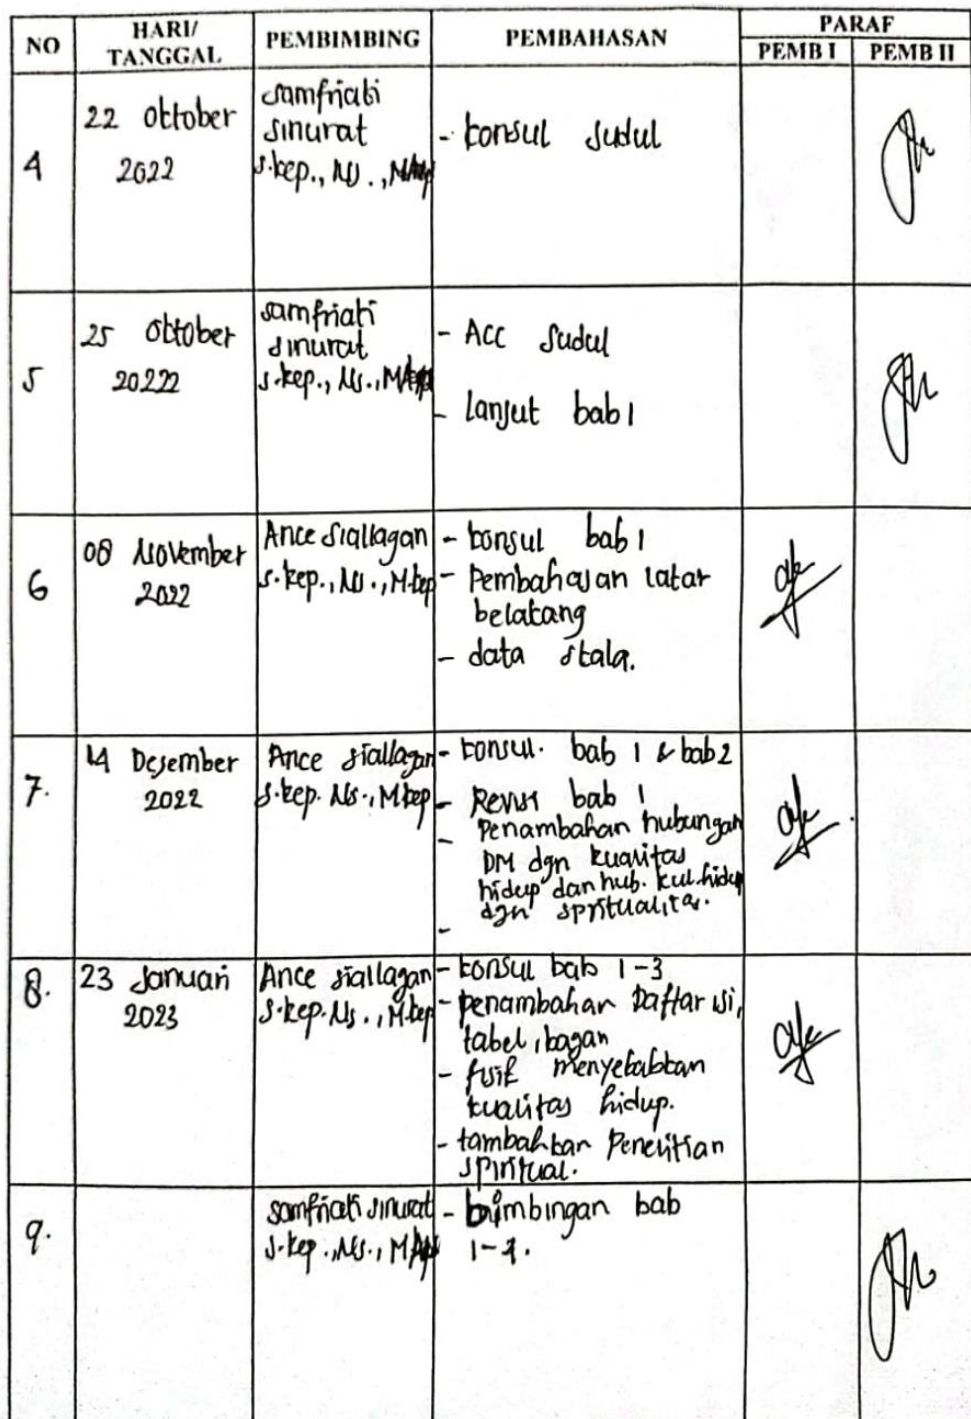 NO HARI/ TANGGAL PEMBIMBING PEMBAHASAN PARAF
PEMB I PEMB II
4
22 Oktober
2022
Samfriati
Sinurat
S.kep., Ns.,
- konsul Judul
5
25 Oktober
20222
Samfriati
Sinurat
S.kep., Ns.,
- Acc Judul
- Lanjut bab 1
6
08 November
2022
Ance Siallagan
S.kep., Ns., M.kep
- konsul bab 1
- Pembahasan latar
belakang
- data skala.
7.
14 Desember
2022
Ance Siallagan
S.kep. Ns., M.kep
- konsul. bab 1 & bab 2
- Revisi bab 1
- Penambahan hubungan
DM dgn kualitas
hidup dan hub. kul.hidup
dgn spritualitas.
-
8.
23 Januari
2023
Ance Siallagan
S.kep. Ns., M.kep
- konsul bab 1-3
- penambahan Daftar isi,
tabel, bagan
- fisik menyebabkan
kualitas hidup.
- tambahkan Penelitian
spiritual.
9.
Samfriati Sinurat
S.kep., Ns.,
- bimbingan bab